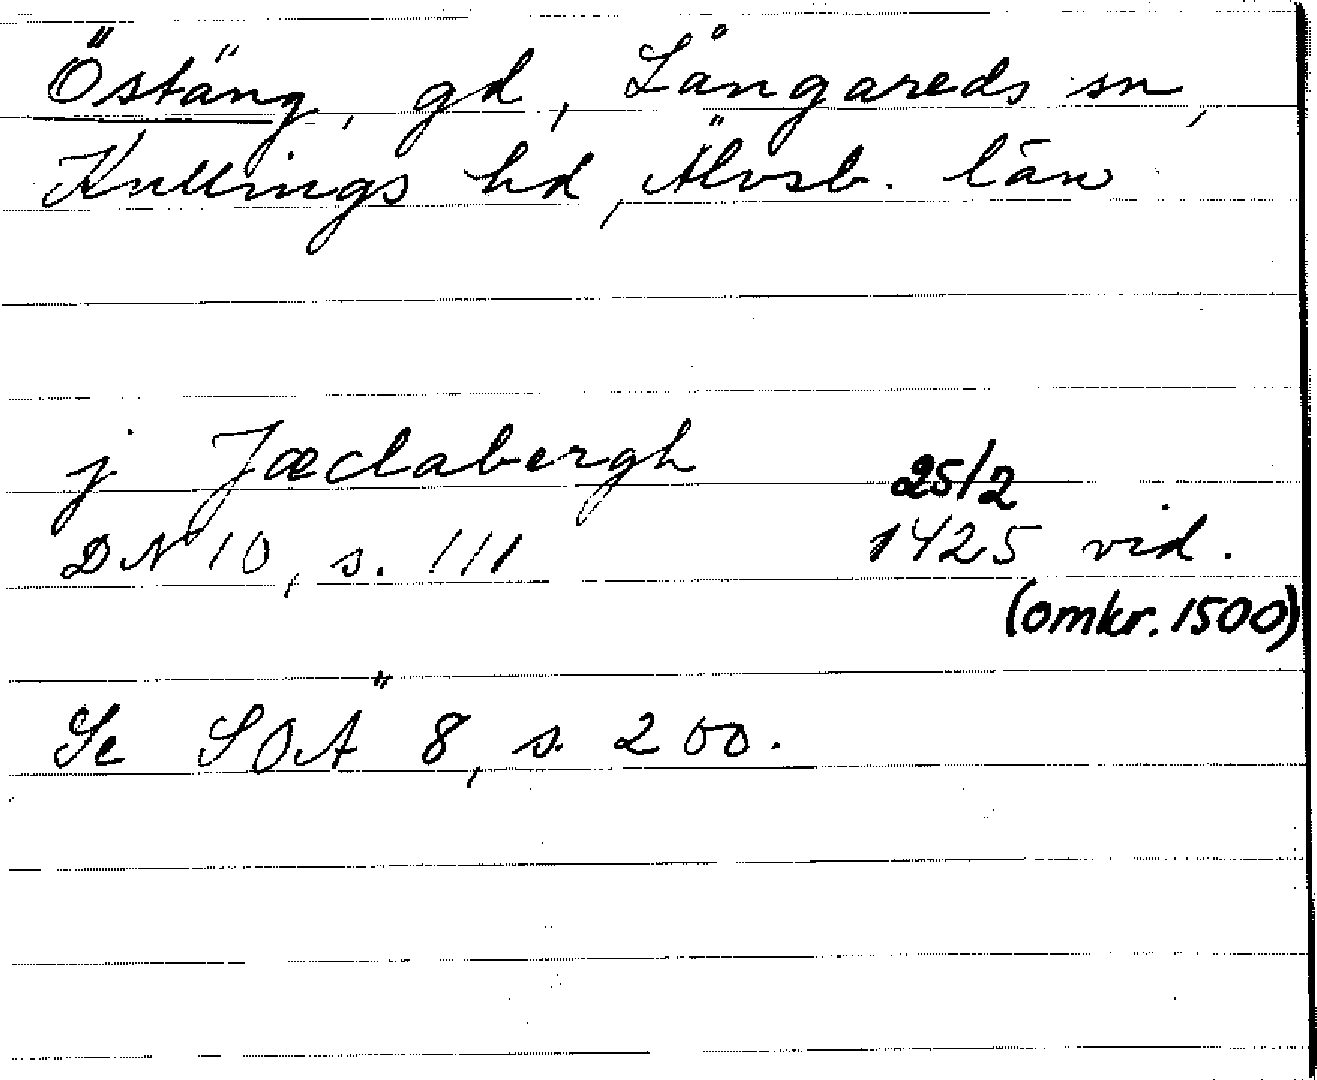 Östäng, gd, Långareds sn,
Kullings hd, Älvsb. län
j Jæclabergh
25/2
DN 10, s. 111 1425 vid.
(omkr. 1500)
Se SOÄ 8, s. 200.